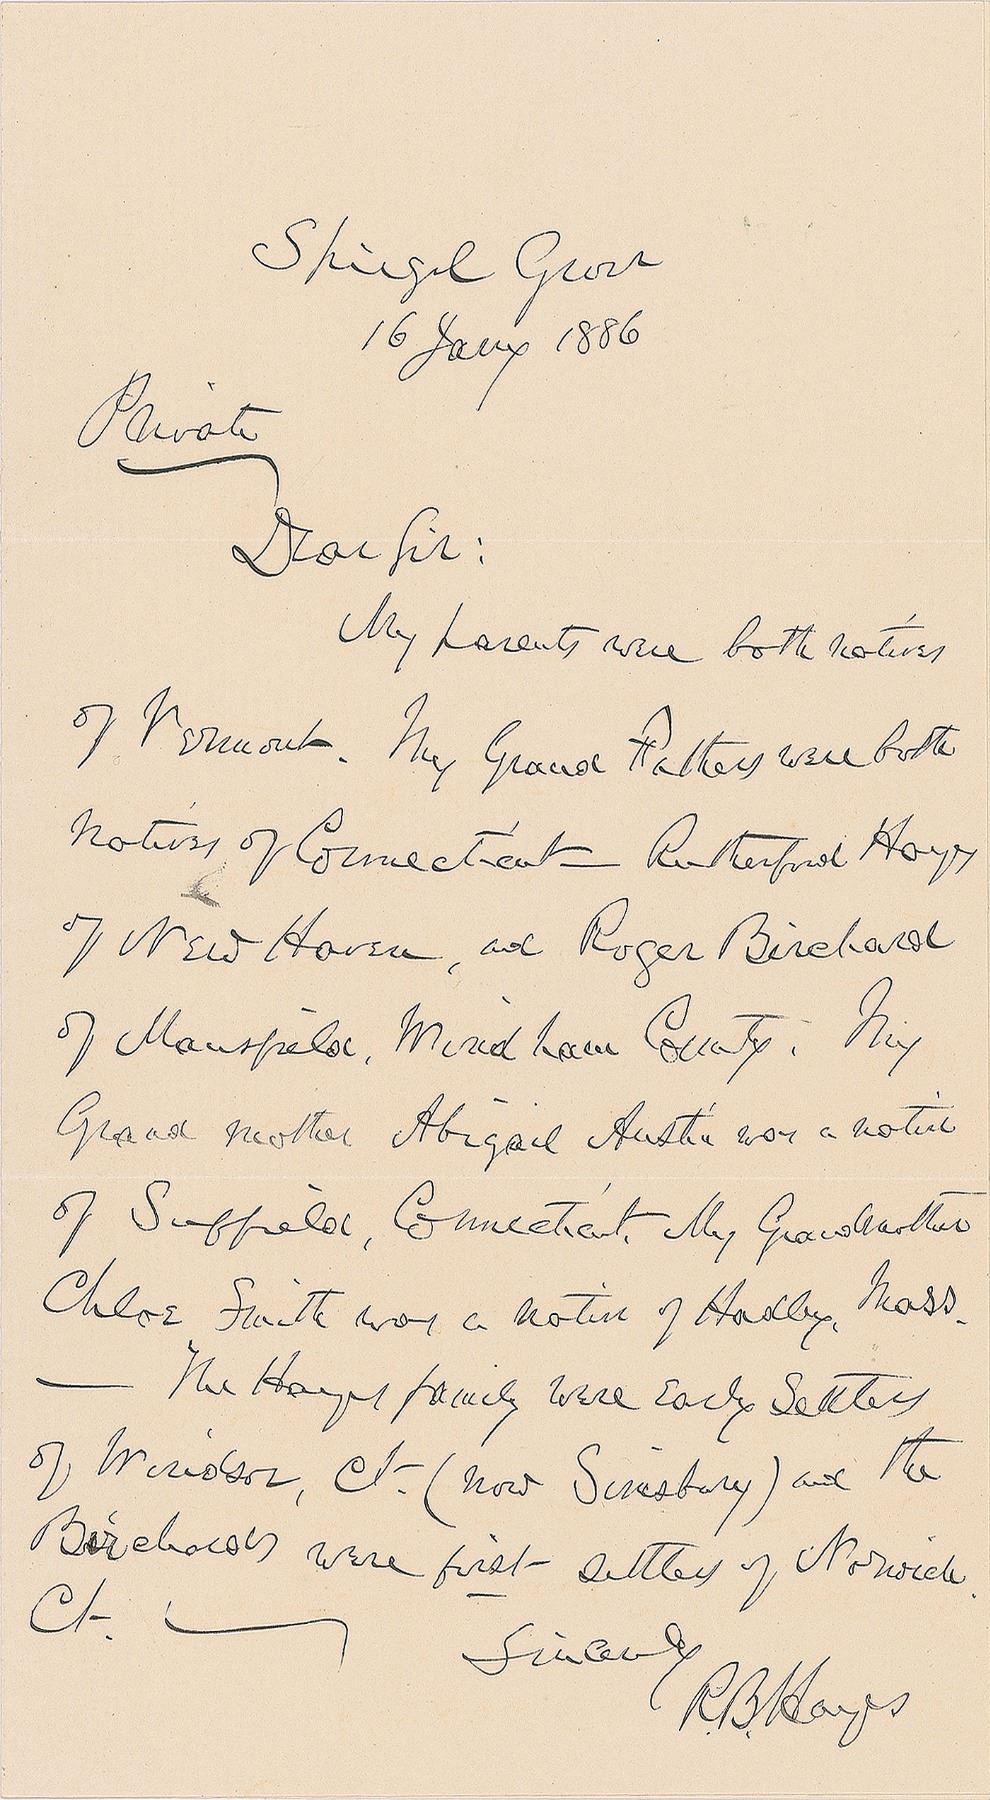 Spiegel Grove
16 Jany 1886
Private
Dear Sir:
My parents were both natives
of Vermont. My Grand Fathers were both
natives of Connecticut — Rutherford Hayes
of New Haven, and Roger Birchard
of Mansfield, Windham County. My
Grand mother Abigail Austin was a native
of Suffield, Connecticut. My Grandmother
Chloe Smith was a native of Hadley, Mass.
— The Hayes family were early settlers
of Windsor, Ct. (now Simsbury) and the
Birchards were first settlers of Norwich.
Ct.
Sincerely
R.B. Hayes